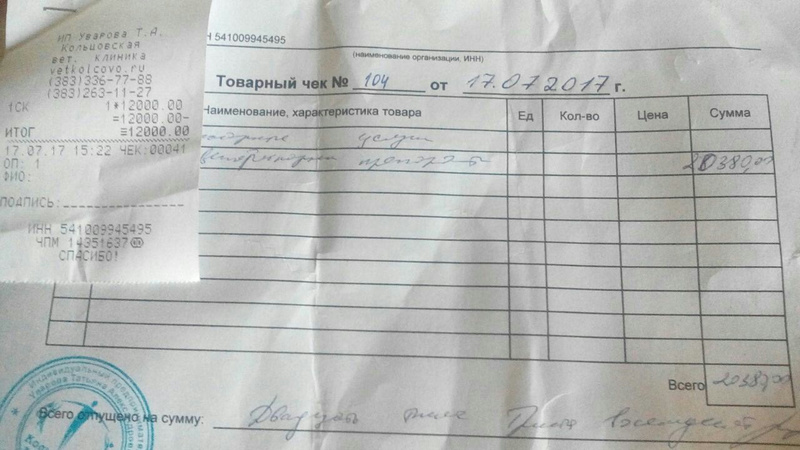 ИП Уварова Т.А.
Кольцовская
вет. клиника
vetkolcovo.ru
(383)336-77-88
(383)263-11-27
1СК 1*12000.00
=12000.00-
ИТОГ ≡12000.00
17.07.17 15:22 ЧЕК:00041
ОП: 1
ФИО:
ПОДПИСЬ:
ИНН 541009945495
ЧПМ 14351637
СПАСИБО!
Н 541009945495
(наименование организации, ИНН)
Товарный чек № 104 от 17.07.2017 г.
Наименование, характеристика товара Ед Кол-во Цена Сумма
услуги
20389,00
Всего 20389,00
Всего отпущено на сумму: Двадцать триста восемьдесят
Индивидуальный
Уварова Татьяна